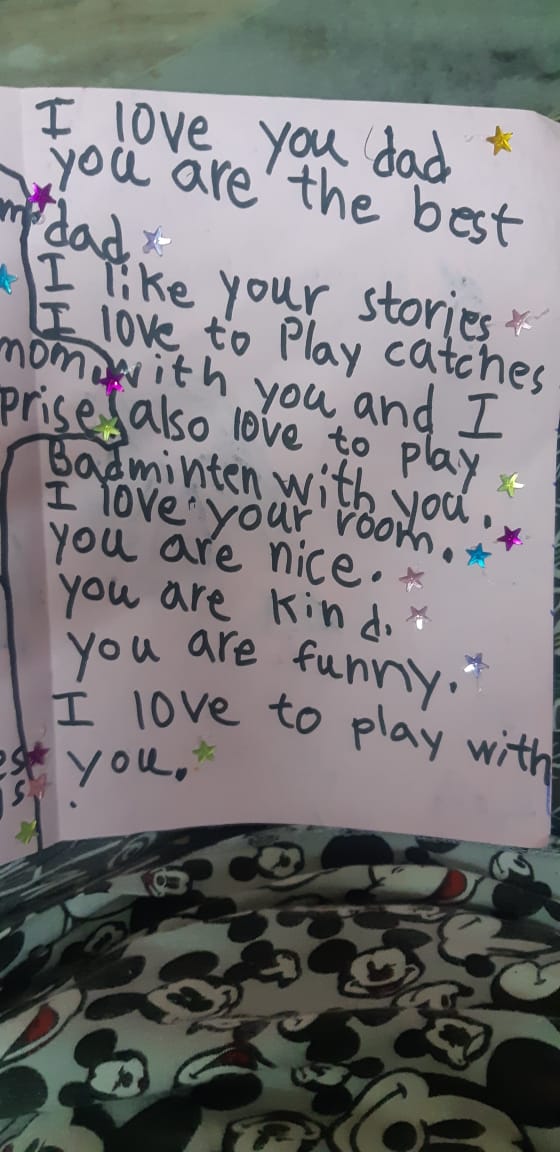 I love you dad
you are the best
dad
I like your stories
I love to Play catches
with you and I
also love to play
Badminten with you.
I love your room.
you are nice.
you are kind.
you are funny.
I love to play with
you.
mom
prise